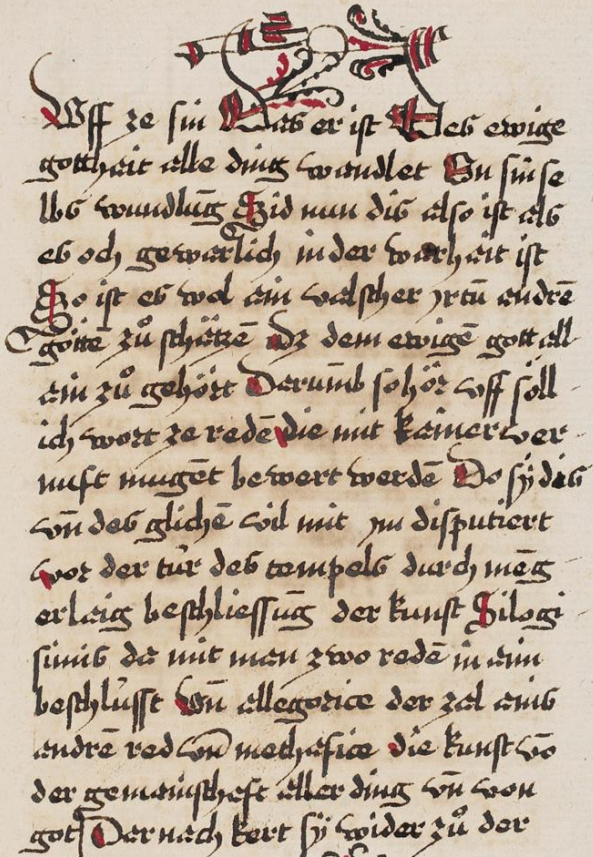 Vff ze sin Das er ist Des ewige
gotthait alle ding wandlet On sin se
lbs wandlūg Sid nun dis also ist als
es och gewarlich in der warhait ist
So ist es wol ain valscher yrtū andrē
göttē zů schätzē Dz dem ewigē gott all
ain zů gehört Darumb so hör vff söll
ich wort ze redē die mit kainer ver
nuft mugēt bewert werdē Do sÿ dis
vn̄ des glichē vil mit jm disputiert
vor der tür des tempels durch mēg
erlaig beschliessūg der kunst Silogi
simis da mit man zwo redē in ain
beschlüsst Vn̄ allegorice der zal ains
andrē red vn̄ methafice die kunst vō
der gemainschafft aller ding vn̄ von
got Darnach kert sÿ wider zů der